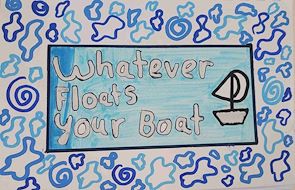 Whatever
Floats
Your Boat